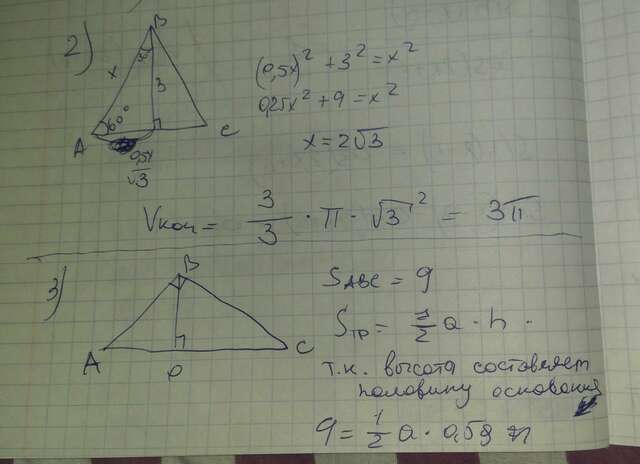 2)
B
x
3
60°
A
C
0,5x
√3
(0,5x)² + 3² = x²
0,25x² + 9 = x²
x = 2√3
Vкон = 3/3 · π · √3² = 3π
3)
B
A
C
O
SABC = 9
Sтр = 1/2 a · h ·
т.к. высота составляет
половину основания
9 = 1/2 a · 0,5a